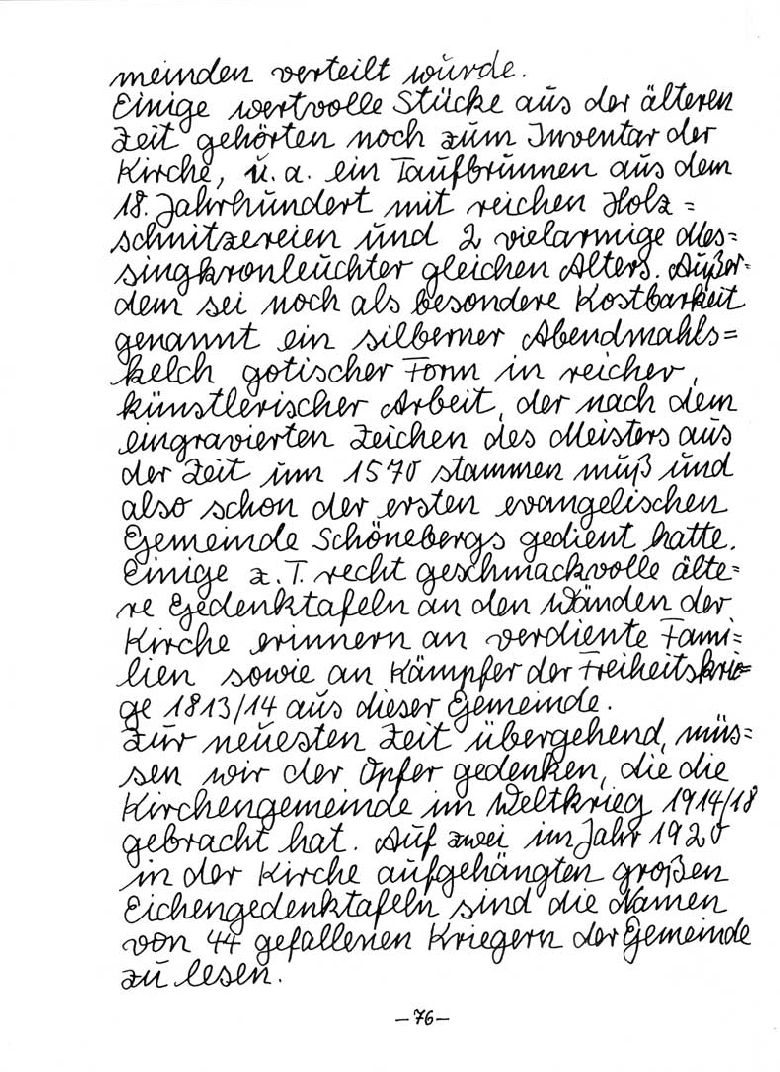 meinden verteilt wurde.
Einige wertvolle Stücke aus der älteren
Zeit gehörten noch zum Inventar der
Kirche, u. a. ein Taufbrunnen aus dem
18. Jahrhundert mit reichen Holz=
schnitzereien und 2 vielarmige Mes=
singkronleuchter gleichen Alters. Außer=
dem sei noch als besondere Kostbarkeit
genannt ein silberner Abendmahls=
kelch gotischer Form in reicher,
künstlerischer Arbeit, der nach dem
eingravierten Zeichen des Meisters aus
der Zeit um 1570 stammen muß und
also schon der ersten evangelischen
Gemeinde Schönebergs gedient hatte.
Einige z. T. recht geschmackvolle älte=
re Gedenktafeln an den Wänden der
Kirche erinnern an verdiente Fami=
lien sowie an Kämpfer der Freiheitskrie=
ge 1813/14 aus dieser Gemeinde.
Zur neuesten Zeit übergehend, müs=
sen wir der Opfer gedenken, die die
Kirchengemeinde im Weltkrieg 1914/18
gebracht hat. Auf zwei im Jahr 1920
in der Kirche aufgehängten großen
Eichengedenktafeln sind die Namen
von 44 gefallenen Kriegern der Gemeinde
zu lesen.
–76–